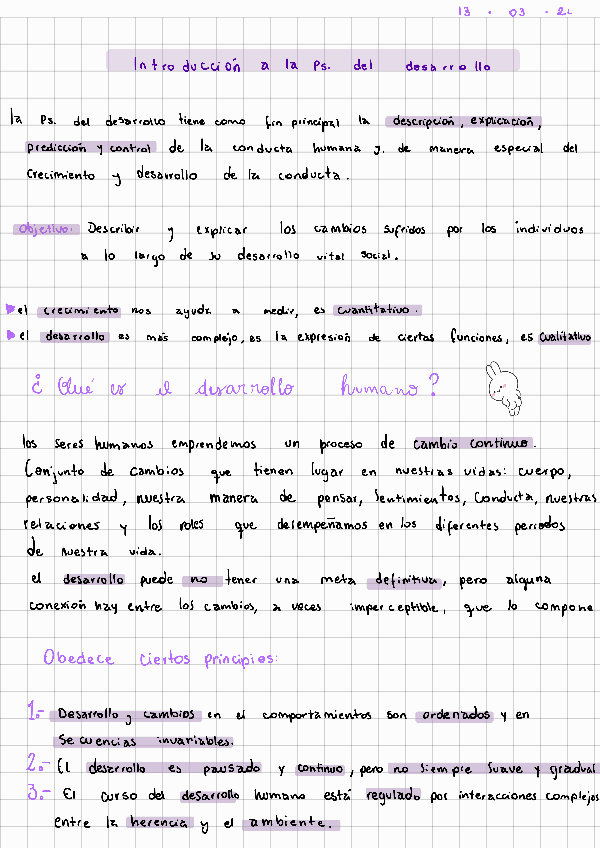 13 . 03 . 24
Introducción a la Ps. del desarrollo
la Ps. del desarrollo tiene como fin principal la descripción, explicación,
predicción y control de la conducta humana y. de manera especial del
crecimiento y desarrollo de la conducta.
Objetivo: Describir y explicar los cambios sufridos por los individuos
a lo largo de su desarrollo vital social.
▶el crecimiento nos ayuda a medir, es cuantitativo.
▶el desarrollo es más complejo, es la expresión de ciertas funciones, es cualitativo
¿Qué es el desarrollo humano?
los seres humanos emprendemos un proceso de cambio continuo.
Conjunto de cambios que tienen lugar en nuestras vidas: cuerpo,
personalidad, nuestra manera de pensar, sentimientos, conducta, nuestras
relaciones y los roles que desempeñamos en los diferentes periodos
de nuestra vida.
el desarrollo puede no tener una meta definitiva, pero alguna
conexión hay entre los cambios, a veces imperceptible, que lo compone
Obedece ciertos principios:
1.- Desarrollo y cambios en el comportamientos son ordenados y en
secuencias invariables.
2.- El desarrollo es pausado y continuo, pero no siempre suave y gradual
3.- El curso del desarrollo humano está regulado por interacciones complejos
entre la herencia y el ambiente.